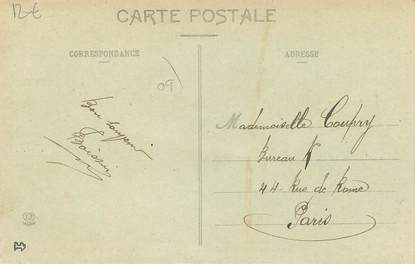 12 €
CARTE POSTALE
CORRESPONDANCE
ADRESSE
09
Bon
Mademoiselle Coupry
Bureau
44 Rue de Rome
Paris